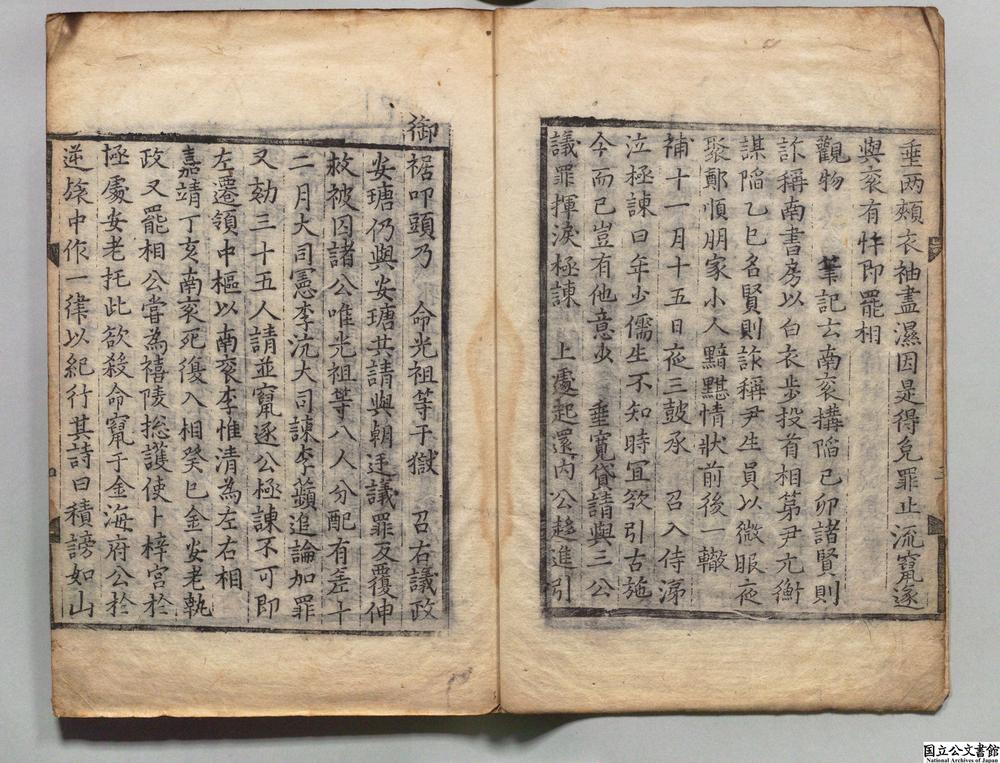 垂两頰衣袖盡濕因是得免罪止流竄遂
與衮有忤即罷相
觀物　筆記云南衮搆陷己卯諸賢則
詐稱南書房以白衣步投首相第尹元衡
謀陷乙巳名賢則詐稱尹生員以微服夜
聚鄭順朋家小人黯黮情狀前後一轍
補十一月十五日夜三皷承　召入侍涕
泣極諫曰年少儒生不知時宜欲引古施
今而已豈有他意少　垂寬貸請與三公
議罪揮淚極諫　上處起還內公趍進引
御裾叩頭乃　命光祖等于獄　召右議政
安瑭仍與安瑭共請與朝廷議罪反覆伸
救被囚諸公唯光祖等八人分配有差十
二月大司憲李沆大司諫李蘋追論加罪
又劾三十五人請並竄逐公極諫不可即
左遷領中樞以南衮李惟清為左右相
嘉靖丁亥南衮死復入相癸巳金安老執
政又罷相公嘗為禧陵捴護使卜梓宮於
極處安老托此欲殺命竄于金海府公於
逆旅中作一律以紀行其詩曰積謗如山
国立公文書館
National Archives of Japan